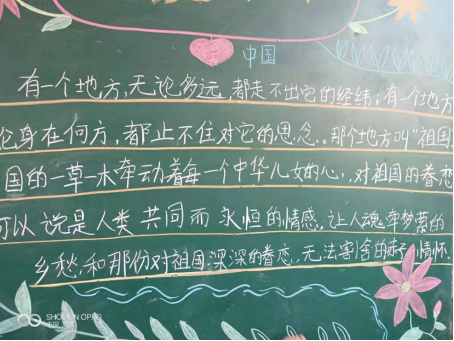 中国
有一个地方,无论多远,都走不出它的经纬;有一个地方
论身在何方,都止不住对它的思念。那个地方叫"祖国
国的一草一木牵动着每一个中华儿女的心,对祖国的眷恋
可以说是人类共同而永恒的情感,让人魂牵梦萦的
乡愁,和那份对祖国深深的眷恋,无法割舍的赤子情怀.
SHOT ON OPPO